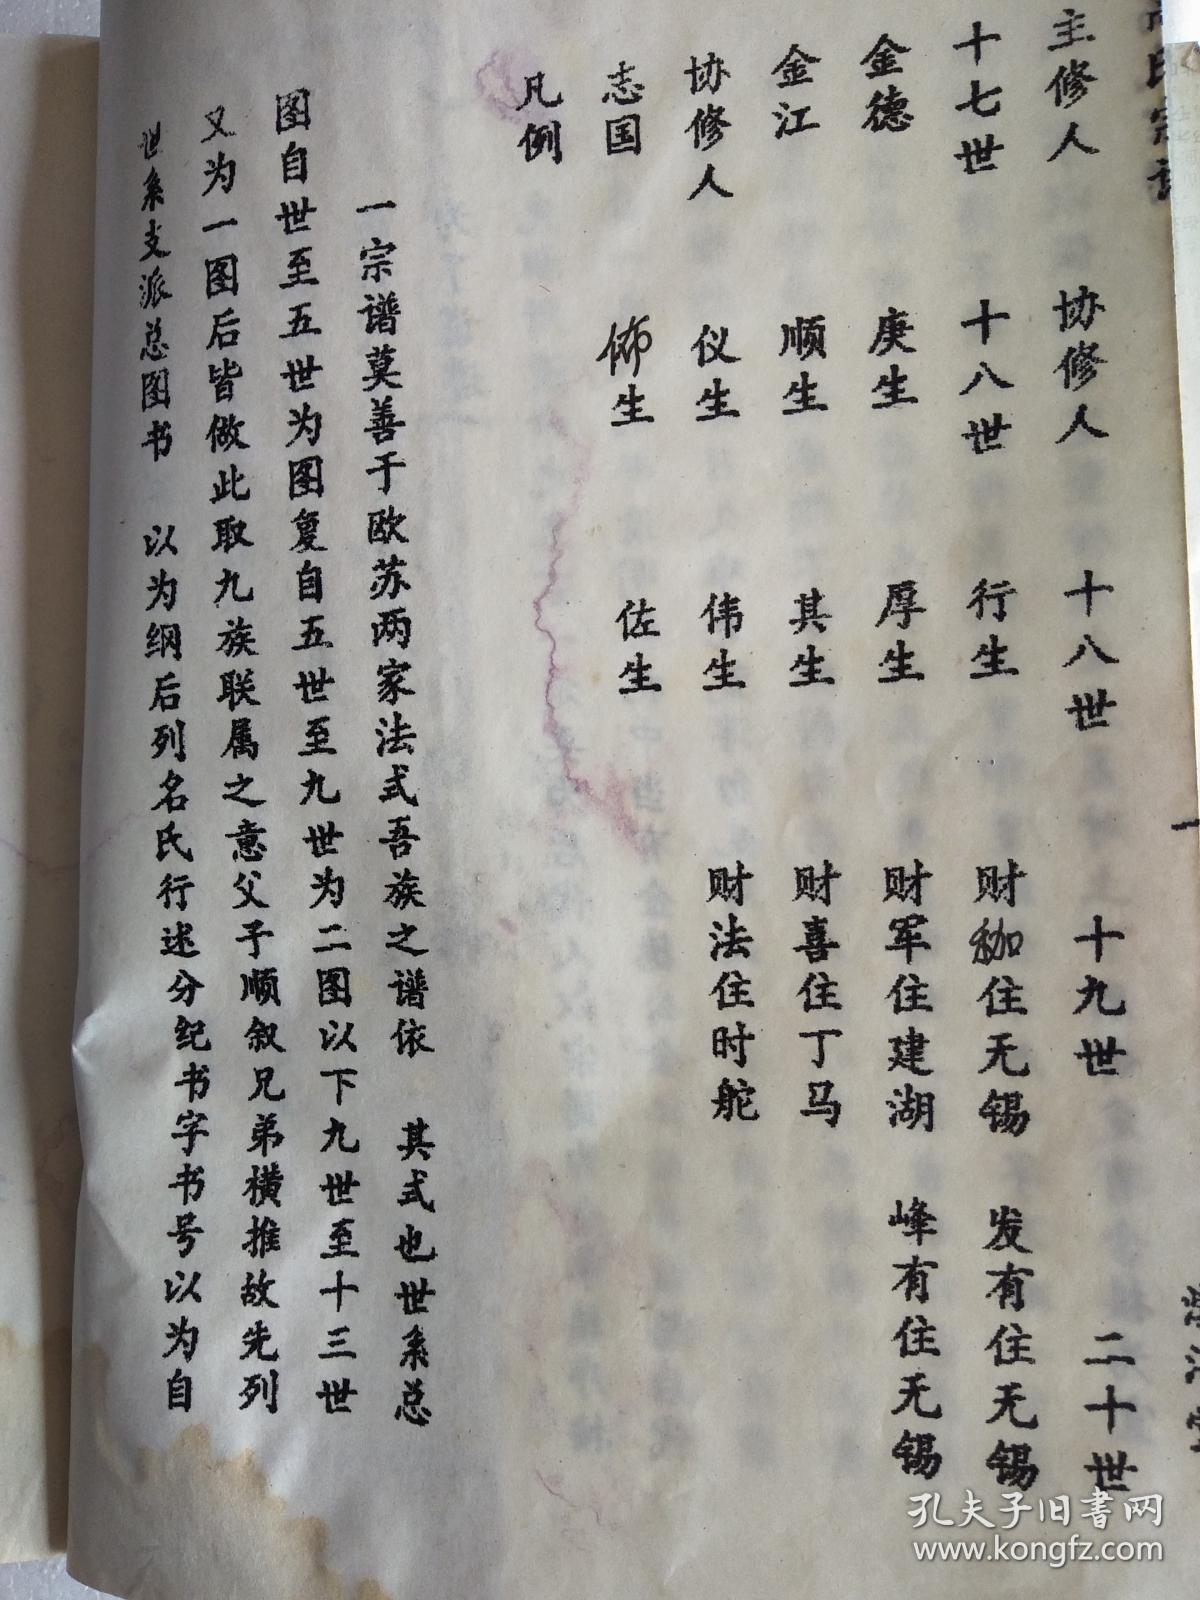 氏宗谱
主修人 协修人 十八世 十九世 二十世
十七世 十八世 行生 财珈住无锡 发有住无锡
金德 庚生 厚生 财军住建湖 峰有住无锡
金江 顺生 其生 财喜住丁马
协修人 仪生 伟生 财法住时舵
志国 佈生 佐生
凡例
一宗谱莫善于欧苏两家法式吾族之谱依 其式也世系总
图自世至五世为图复自五世至九世为二图以下九世至十三世
又为一图后皆做此取九族联属之意父子顺叙兄弟横推故先列
世系支派总图书 以为纲后列名氏行述分纪书字书号以为自
孔夫子旧书网
www.kongfz.com